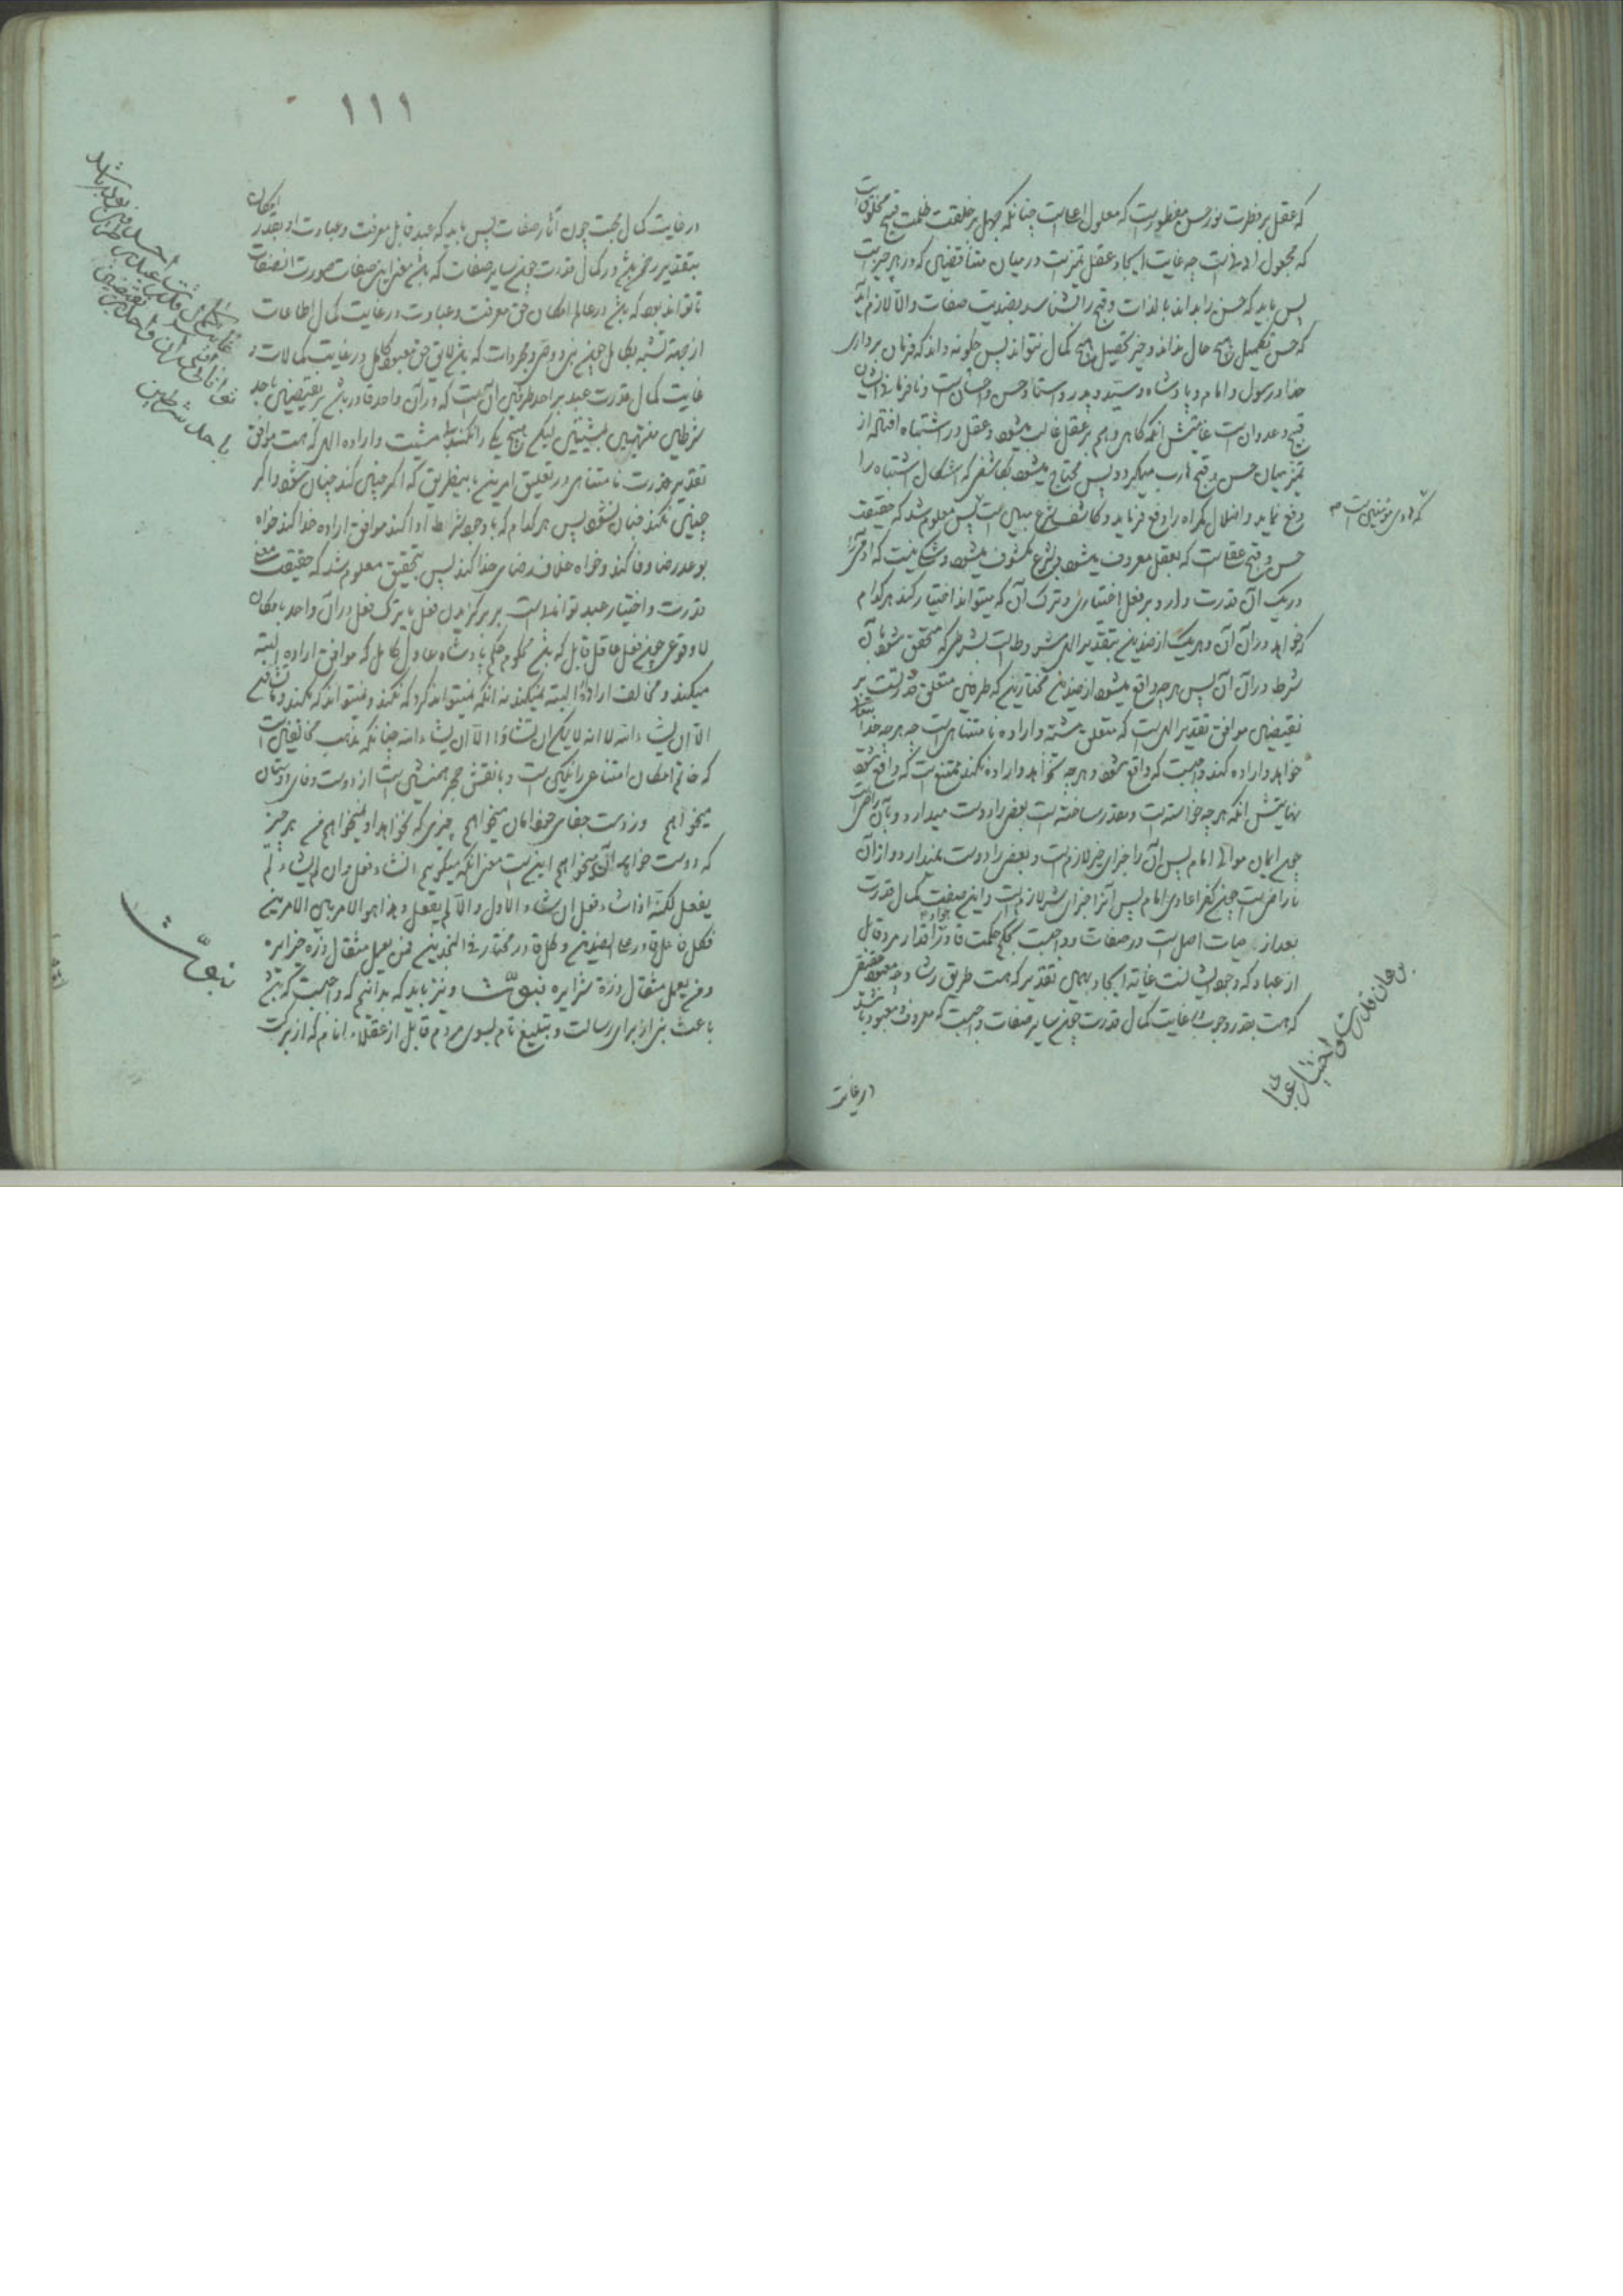 که عقل بر فطرت نور حسن مفطورست که معلول اعلاست چنانکه جهل بر خلقت ظلمت قبح مخلوق است
که مجعول ادناست چه غایت ایجاد عقل تمیزست در میان متناقضین که در هر چیزیست
پس باید که حسن را بداند بالذات و قبح را بشناسد بضدیت صفات والا لازم آید
که حسن تکمیل هیچ حال نداند و خیر تحصیل هیچ کمال نتواند پس چگونه داند که فرمان برداری
خدا و رسول و امام و پادشاه و سید و پدر و استاد حسن و احسان است و نافرمانی ایشان
قبح و عدوان است غایتش آنکه گاهی وهم بر عقل غالب میشود و عقل در اشتباه افتاده از
تمیز میان حسن و قبح هارب میگردد پس محتاج میشود بکاشفی که اشکال اشتباه را
رفع نماید و اضلال گمراه را دفع فرماید و کاشف شرع مبین است پس معلوم شد که حقیقت
که هادی مؤمنین است
حسن و قبح عقلیست که بعقل معروف میشود و بشرع مکشوف میشود و شک نیست که آدمی را
در یک آن قدرت دارد بر فعل اختیاری و ترک آن که میتواند اختیار کند هر کدام
که خواهد در آن آن و هر یک از ضدین بتقدیر الهی مشروطست بشرطی که متحقق شود با آن
شرط در آن آن پس هر چه واقع میشود از ضدین مختارین که طرفین متعلق قدرتست بر
نقیضین موافق تقدیر الهیست که متعلق مشیت و اراده نامتناهی است چه هر چه خدا
خواهد و اراده کند واجبست که واقع شود و هر چه نخواهد و اراده نکند ممتنع است که واقع شود
نهایتش آنکه هر چه خواسته است و مقدر ساخته است بعضی را دوست میدارد و بآن راضی است
چون ایمان موالی امام پس آن را جزای خیر لازم است و بعضی را دوست نمیدارد و از آن
ناراضی است چون کفر اعادی امام پس آنرا جزای شر لازم است و این صفت کمال قدرت
بعد از حیات اصل است در صفات و واجبست بحکم حکمت قادر اقدار مرد قابل
از عباد که وجود ایشانست غایة ایجاد بهمین تقدیر که هست طریق رشاد چه معبود حقیقی
که هست بقدر وجوب بغایت کمال قدرت چون سایر صفات واجبست که معروف و معبود باشد
برهان قدرت و اختیار عباد
در غایت
۱۱۱
در غایت کمال محبت چون آثار صفات پس باید که عبد قابل معرفت و عبادت او بقدر امکان
بتقدیر رحمن باشد در کمال قدرت چون سایر صفات که باشد معنی این صفات صورت اتصاف
تا تواند بود که باشد در عالم امکان حق معرفت و عبادت در غایت کمال اطاعات
از جهت تشبه بکامل چون نبی و وصی و مجردات که باشد لایق حق معبود کامل در غایت کمالات و
غایت کمال قدرت عبد بر احد طرفین آن است که در آن واحد قادر باشد بر نقیضین باحد
شرطین منتهیین بمشیتین لیکن هیچ یک را نکند الا بمشیت و اراده الهی که هست موافق
تقدیر قدرت نامتناهی در تعلیق امرین باینطریق که اگر چنین کند چنان شود و اگر
چنین نکند چنان نشود پس هر کدام که با وجود شرایط ادا کند موافق اراده خدا کند خواه
بوعد رضا وفا کند و خواه خلاف رضای خدا کند پس بتحقیق معلوم شد که حقیقت معنی
قدرت و اختیار عبد تواناییست بر برگزیدن فعل یا ترک فعل در آن واحد بامکان
لا وقوعی چون فعل عاقل قابل که باشد محکوم حکم پادشاه عادل کامل که موافق اراده البته
میکند و مخالف اراده البته نمیکند نه آنکه نمیتواند کرد که نکند و نمیتواند که نکند وما تشاؤن
الا ان یشاء الله لا انه لا یمکن ان تشاؤا الا ان یشاء الله چنانکه مذهب مخالفین است
که خاتم امکان امتناعی را نگین است و با نقش جهر همنشین است از دوست وفای دوستان
میخواهم وز دست جفای خود امان میخواهم چیزی که نخواهد او نمیخواهم من هر چیز
که دوست خواهد آن میخواهم اینست معنی آنکه میگوییم ان شاء فعل وان لم یشاء لم
یفعل لکنه اذا شاء فعل ان شاء الاول والا لم یفعل وهذا هو الامر بین الامرین
فکل فاعل قادر علی الضدین وکل قادر مختار فی النجدین فمن یعمل مثقال ذرة خیرا یره
ومن یعمل مثقال ذرة شرا یره نبوّت و نیز باید که بدانیم که واجبست که باشد
باعث نبی از برای رسالت و تبلیغ تام بسوی مردم قابل از عقلاء انام که از برکت
نبوّت